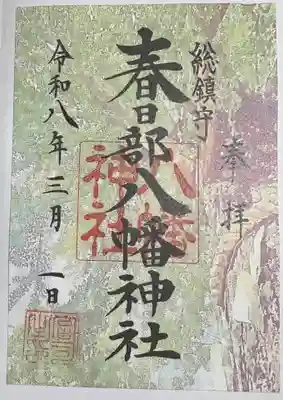 奉拝
総鎮守
春日部八幡神社
八幡神社
令和八年三月一日